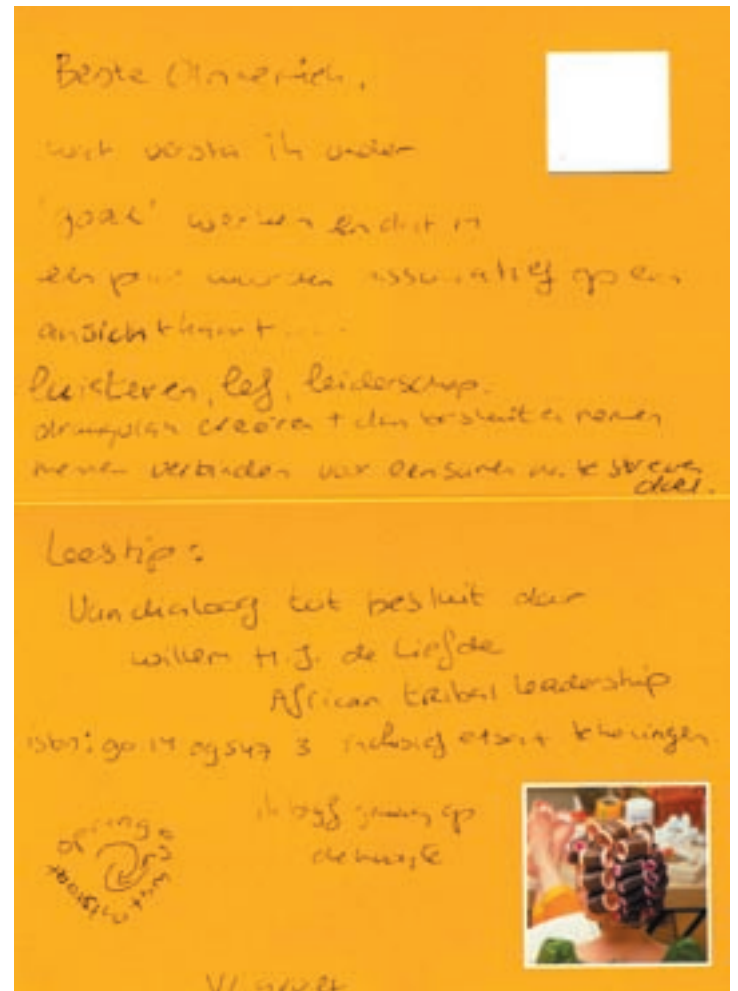 Beste
wat versta ik onder
'goed' werken en dat in
een paar woorden associatief op een
ansichtkaart....
luisteren, lef, leiderschap.
creëren + dan besluiten nemen
mensen verbinden voor een samen na te streven
doel.
Leestip:
Van dialoog tot besluit door
Willem H.J. de Liefde
African tribal leadership
isbn: 90 14 09547 3 inclusief etsen + tekeningen
ik blijf graag op
de hoogte